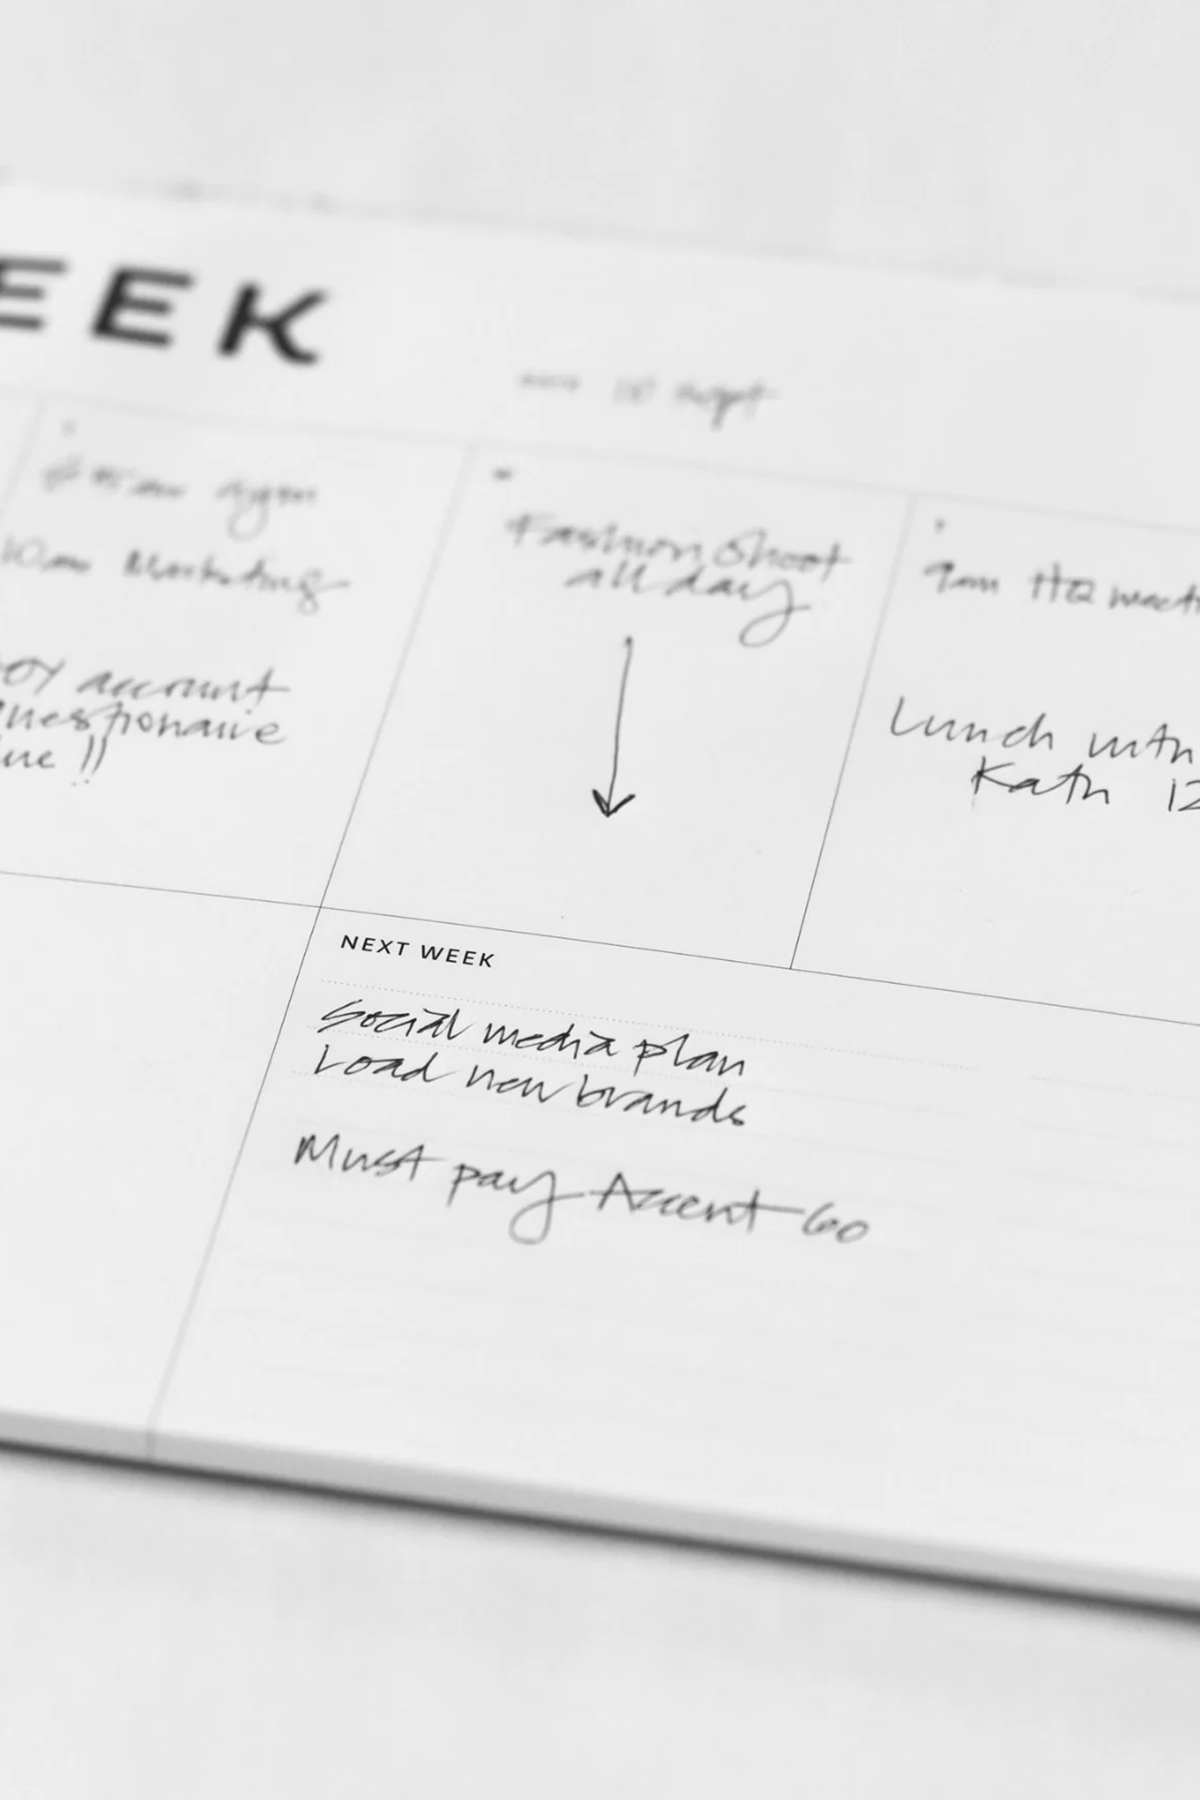 EEK
gym
10am Marketing
account
uestionaire
ue !!
Fashion Shoot
all day
9am HQ meeti
Lunch with
Kath 12
NEXT WEEK
Social media plan
Load new brands
Must pay Accent Go